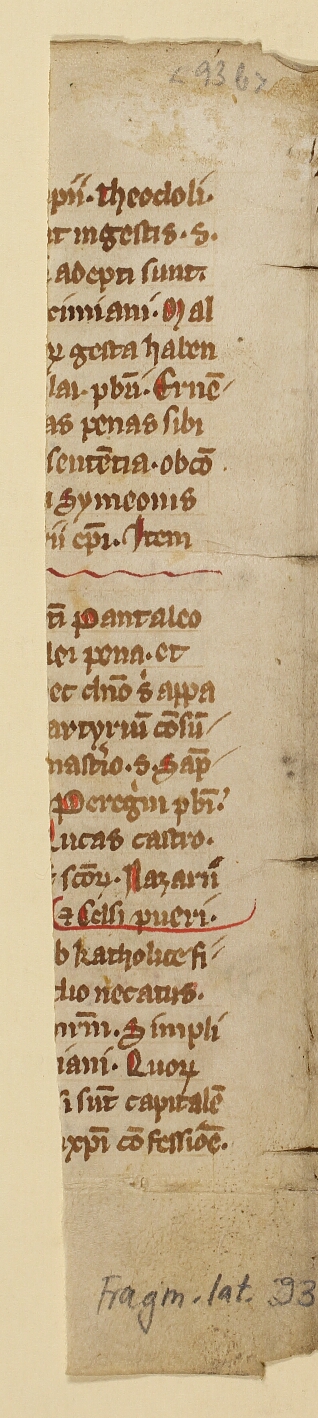 <93b>
pii· theodoli·
nt in gestis· S.
adepti sunt
cimiani· Mal
gesta haben
lai· pbr̄i· Ernē
as penas sibi
sententia· ob cō
Symeonis
ii ep̄i· Item
Pantaleo
lei pena· et
et dn̄o s appa
artyriū cōsū
nastio· s· Sap̄
Peregrin pbr̄i
Lucas castro·
scōꝝ· Nazarii
⁊ Celsi pueri·
b katholice fi
dio necatus·
mr̄m· Simpli
iani· Quoꝝ
si sūt capitalē
xp̄i cōfessiōe·
Fragm. lat. 93